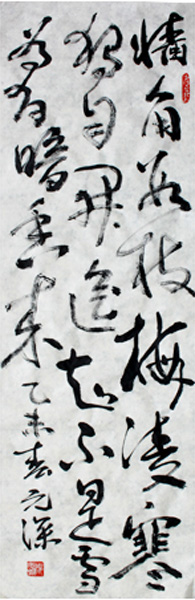 墙角数枝梅凌寒
独自开遥知不是雪
为有暗香来乙未春元深